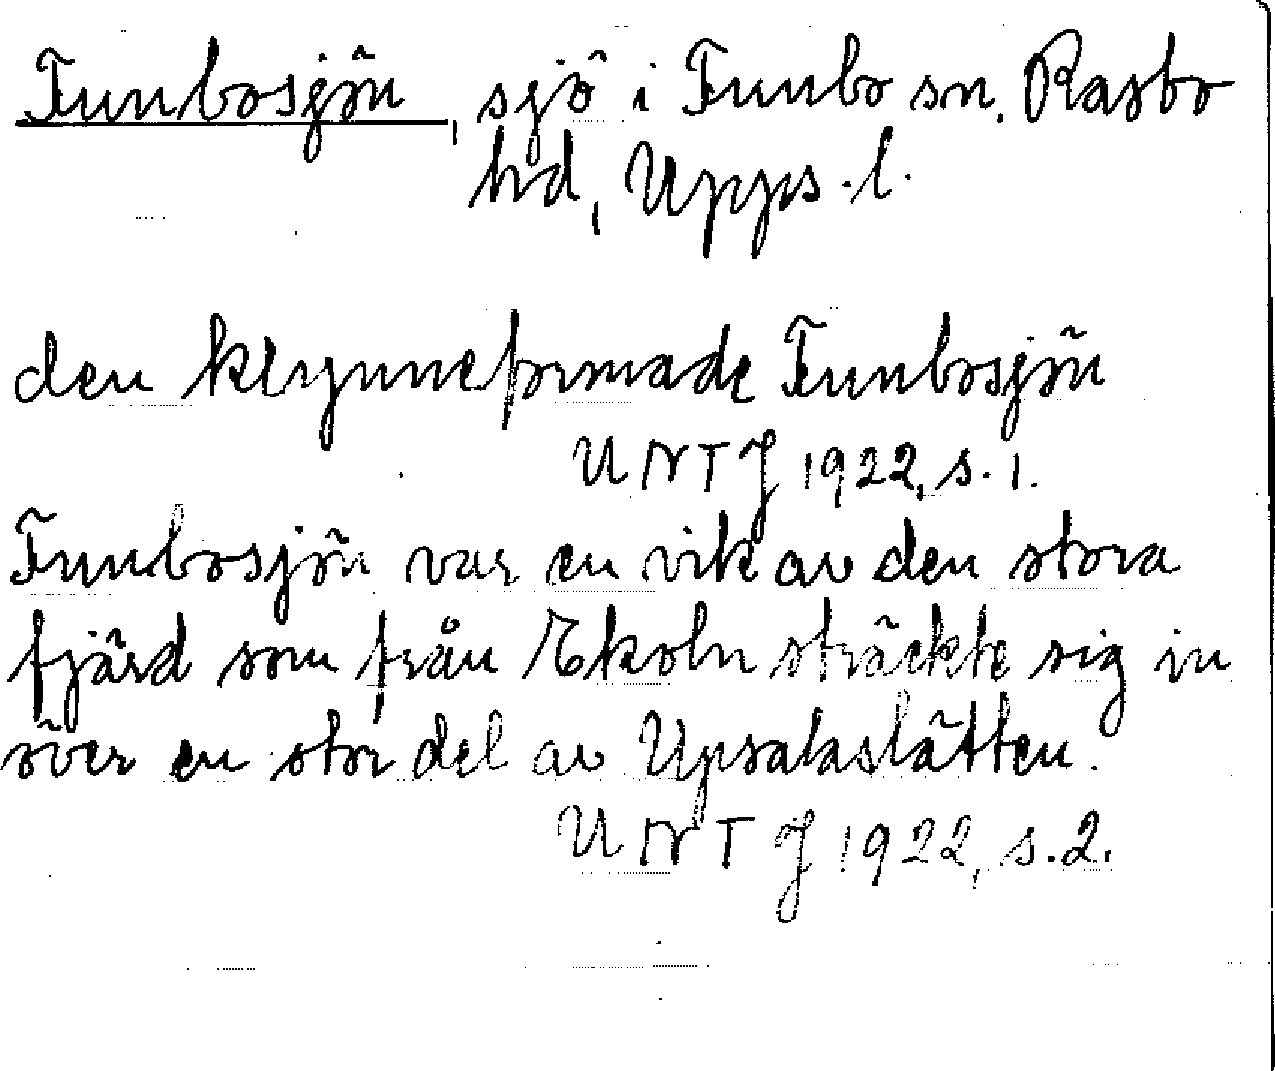 Funbosjön, sjö i Funbo sn. Rasbo
hd, Upps. l.
den klynneformade Funbosjön
UNTJ 1922, s. 1.
Funbosjön var en vik av den stora
fjärd som från Ekoln sträckte sig in
över en stor del av Upsalaslätten.
UNTJ 1922, s. 2.